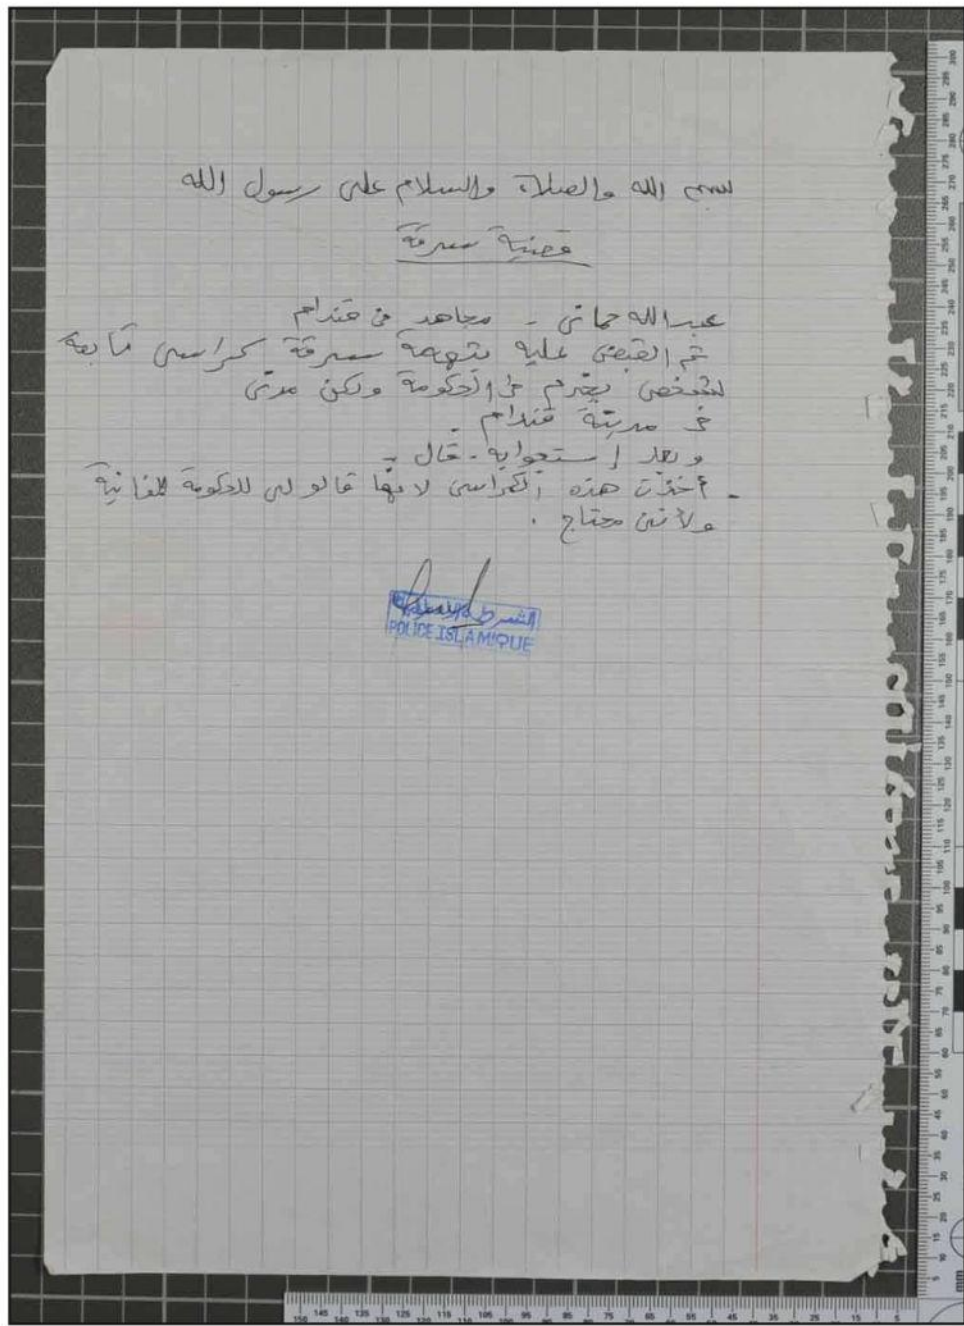 بسم الله والصلاة والسلام على رسول الله
قضية سرقة
عبد الله حماني - مجاهد في قندام
تم القبض عليه بتهمة سرقة كراسي تابعة
لشخص يخدم في الحكومة ولكن مدني
في مدينة قندام .
و بعد إستجوابه - قال :-
- أخذت هذه الكراسي لانها قالو لي للحكومة
ولأنني محتاج .
الشرطة الإسلامية
POLICE ISLAMIQUE